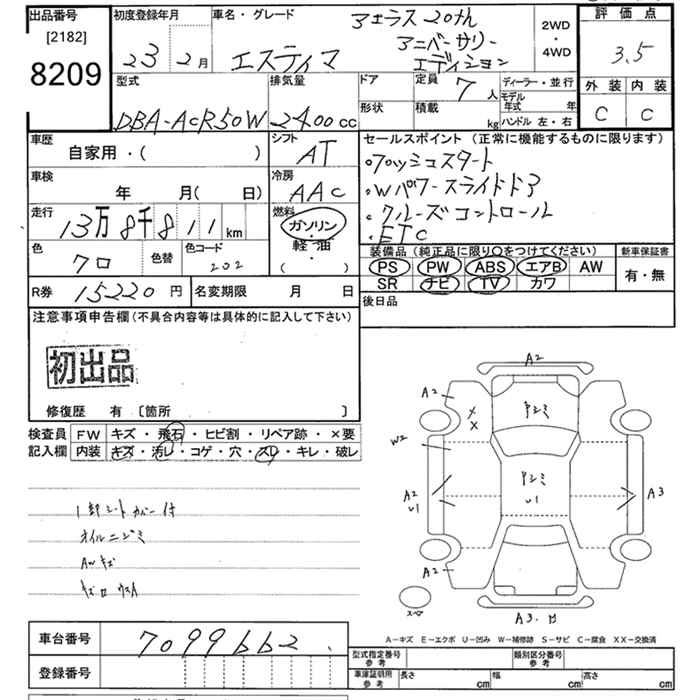 出品番号
[2182]
8209
初度登録年月
23年 2月
車名・グレード
エスティマ
アエラス 20th
アニバーサリー
エディション
2WD
・
4WD
評価点
3.5
外装 内装
C C
型式
DBA-ACR50W
排気量
2400cc
ドア
形状
定員 7人
積載 kg
ディーラー・並行
モデル年式 年
ハンドル 左・右
車歴
自家用・( )
シフト
AT
車検
年 月( 日)
冷房
AAC
走行
13万8千811km
燃料
ガソリン
・
軽油
( )
色
クロ
色替
色コード
202
R券 15220円
名変期限 月 日
セールスポイント(正常に機能するものに限ります)
・プッシュスタート
・Wパワースライドドア
・クルーズコントロール
・ETC
装備品(純正品に限り○をつけてください)
PS PW ABS エアB AW
SR ナビ TV カワ
新車保証書
有・無
後日品
注意事項申告欄(不具合内容等は具体的に記入して下さい)
初出品
修復歴 有〔箇所 〕
検査員記入欄
FW キズ・飛石・ヒビ割・リペア跡・×要
内装 キズ・汚レ・コゲ・穴・スレ・キレ・破レ
オイルニジミ
AWキズ
A2
A2
W2
A2
A2
A3
U1
スペア
A3
A-キズ E-エクボ U-凹み W-補修跡 S-サビ C-腐食 XX-交換済
車台番号 7099662
登録番号
型式指定番号
参考
類別区分番号
参考
車庫証明用
参考
長さ cm
幅 cm
高さ cm